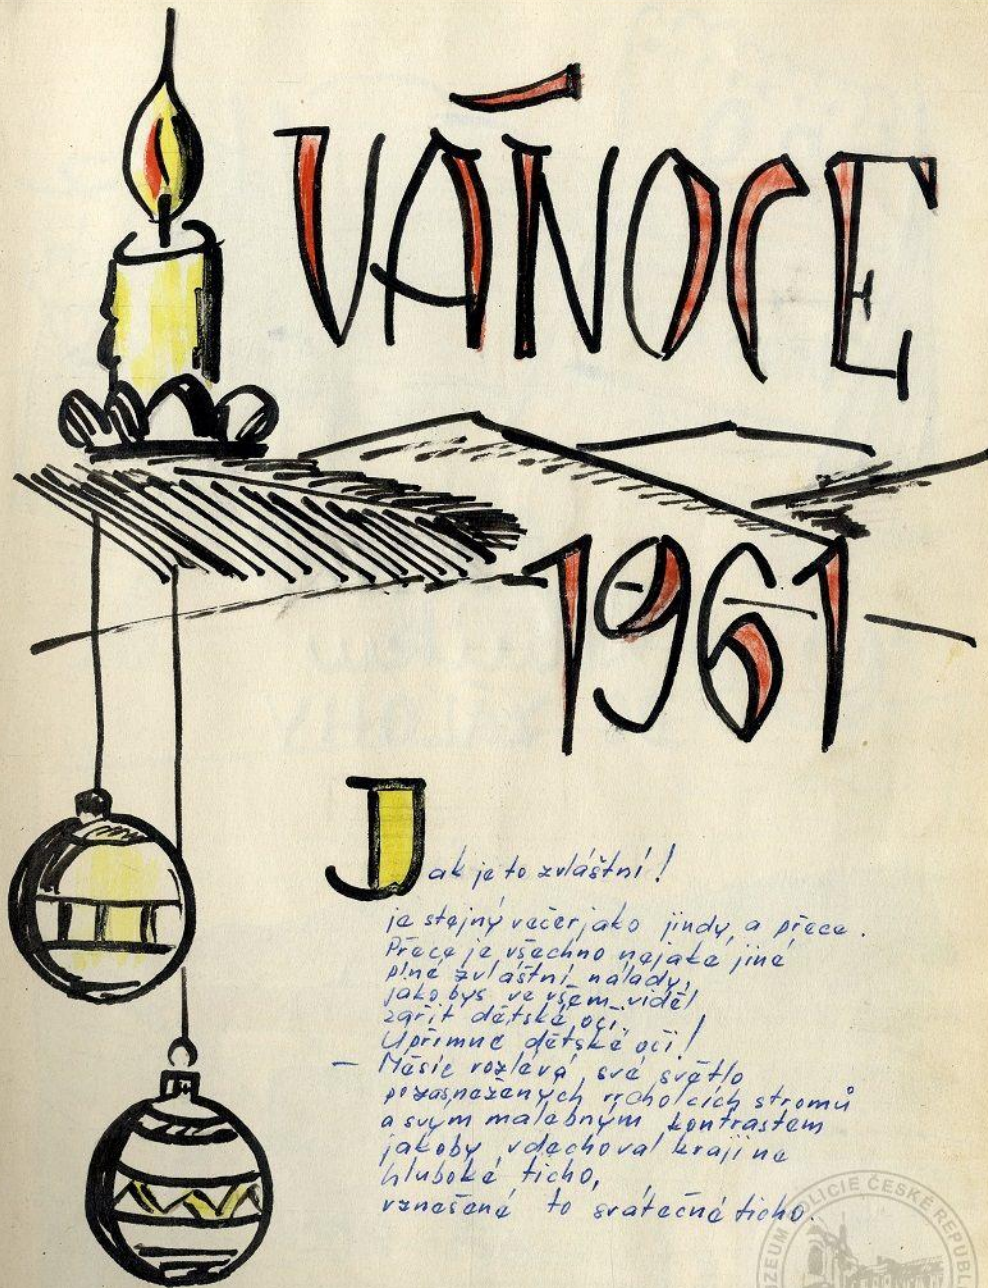 VÁNOCE
1961
Jak je to zvláštní!
je stejný večer jako jindy, a přece.
Přece je všechno nějaké jiné
plné zvláštní nálady,
jako bys ve všem viděl
zářit dětské oči.
Upřímné dětské oči!
– Měsíc rozlévá své světlo
po zasněžených vrcholcích stromů
a svým malebným kontrastem
jakoby vdechoval krajině
hluboké ticho,
vznešené to sváteční ticho.
MUZEUM POLICIE ČESKÉ REPUBL